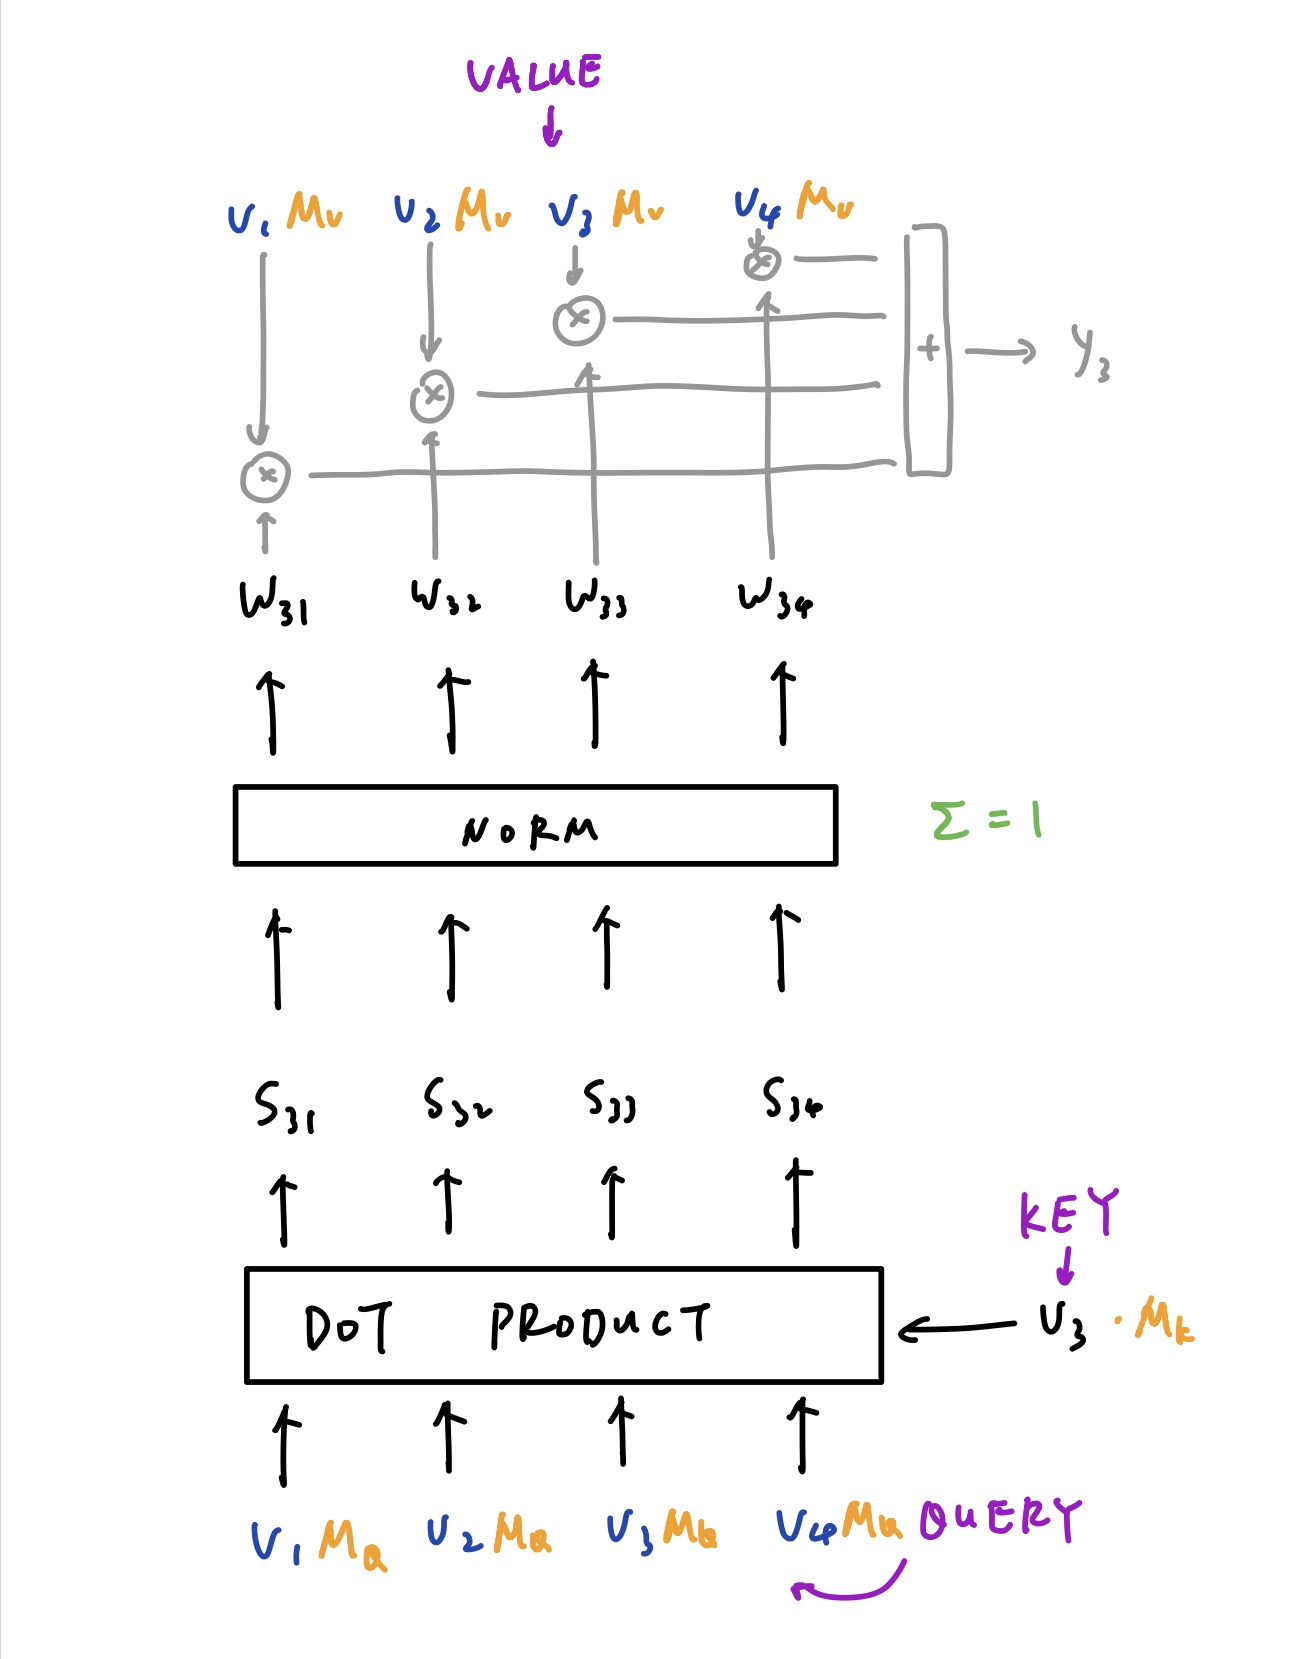 VALUE
V1 Mv V2 Mv V3 Mv V4 Mv
+ → y3
W31 W32 W33 W34
NORM Σ = 1
S31 S32 S33 S34
KEY
DOT PRODUCT V3 · Mk
V1 MQ V2 MQ V3 MQ V4 MQ QUERY